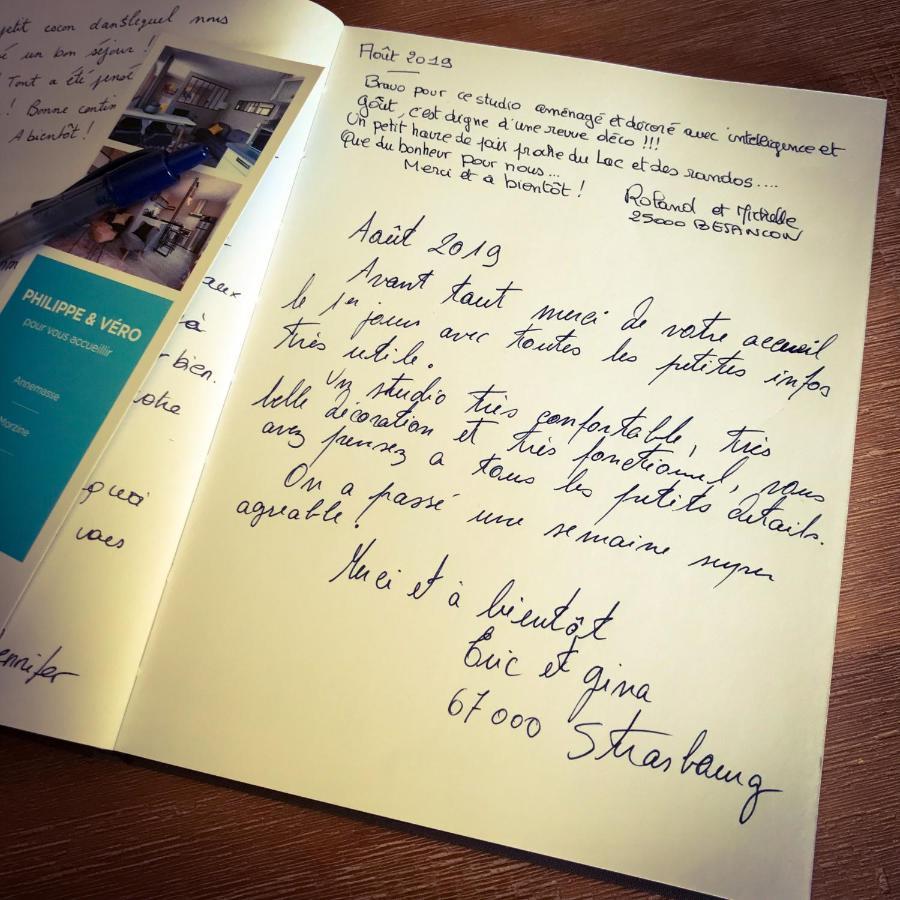 petit cocon dans lequel nous
un bon séjour !
Tout a été pensé
! Bonne contin
A bientôt !
PHILIPPE & VÉRO
pour vous accueillir
Annemasse
Morzine
aux
à
bien.
otre
quoi
vous
ennifer
Août 2019
Bravo pour ce studio aménagé et décoré avec intelligence et
goût, c'est digne d'une revue déco !!!
Un petit havre de paix proche du Lac et des randos....
Que du bonheur pour nous...
Merci et à bientôt !
Roland et Michelle
25000 BESANCON
Août 2019
Avant tout merci de votre accueil
le 1er jour avec toutes les petites infos
très utile.
Un studio très confortable, très
belle décoration et très fonctionnel, vous
avez pensez a tous les petits détails.
On a passé une semaine super
agréable.
Merci et à bientôt
Eric et gina
67000 Strasbourg